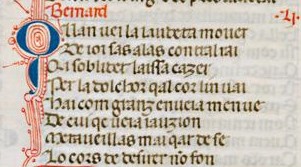 Bernard
Qan vei la laudeta mouer
De ioi sas alas contral rai
Qi soblidet laissa cazer
Per la dolchor qal cor lin vai
Hai com granz enueia men ue
De cui qe ueia iauzion
Merauillas mai qar de se
Lo cors de desirer no fon